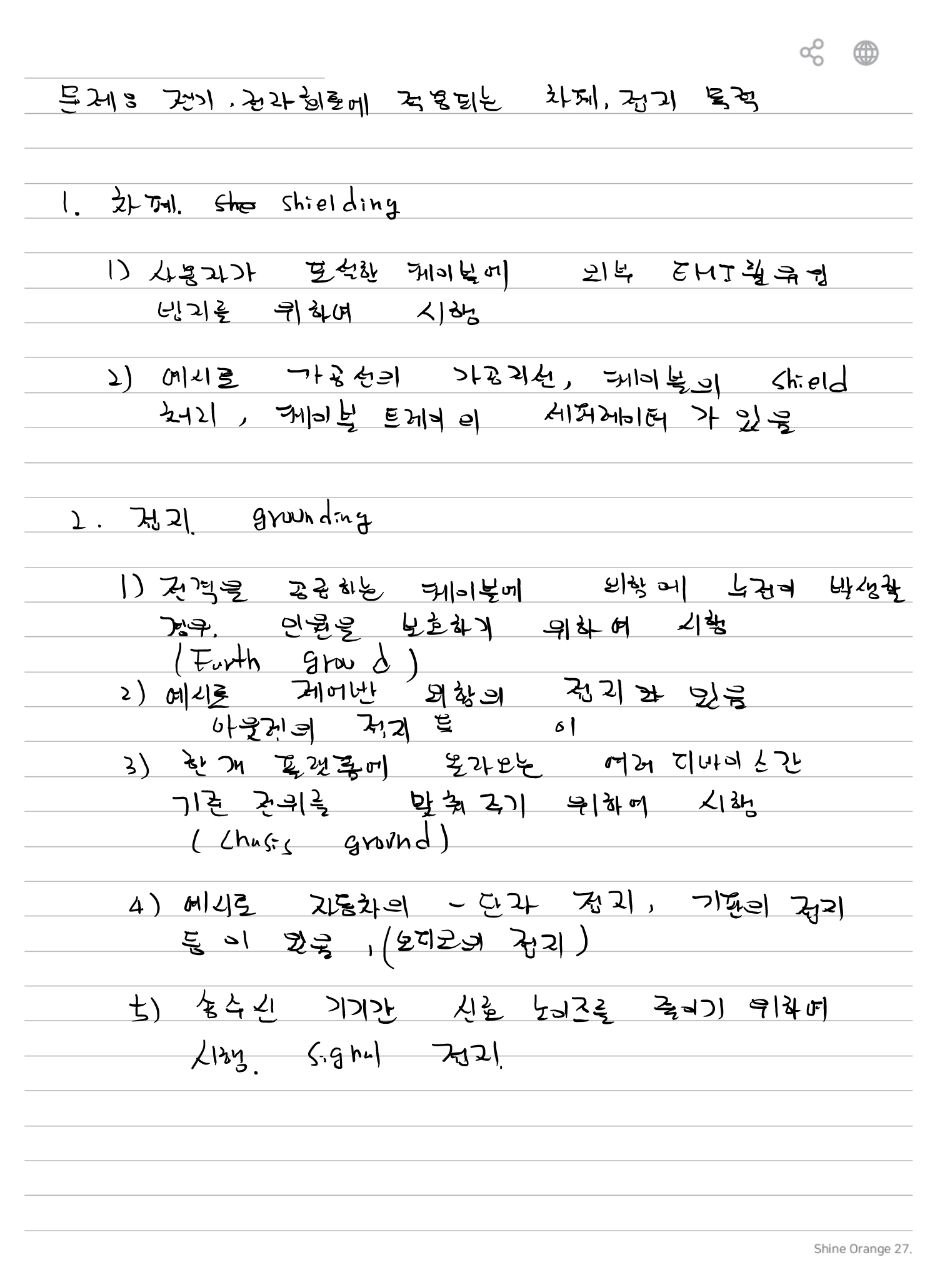 문제8 전기.전자회로에 적용되는 차폐, 접지 목적
1. 차폐. shielding
1) 사용자가 포설한 케이블에 외부 EMI 유입
방지를 위하여 시행
2) 예시로 가공선의 가공지선, 케이블의 shield
처리, 케이블 트레이의 세퍼레이터가 있음
2. 접지. grounding
1) 전력을 공급하는 케이블에 의함에 누전이 발생할
경우. 인원을 보호하기 위하여 시행
(Earth ground)
2) 예시로 제어반 외함의 접지와 있음
아울렛의 접지 등 이
3) 한개 플랫폼에 올라오는 여러 디바이스간
기준 전위를 맞춰주기 위하여 시행
(chasis ground)
4) 예시로 자동차의 - 단자 접지, 기판의 접지
등이 있음, (오디오의 접지)
5) 송수신 기기간 신호 노이즈를 줄이기 위하여
시행. signal 접지.
Shine Orange 27.